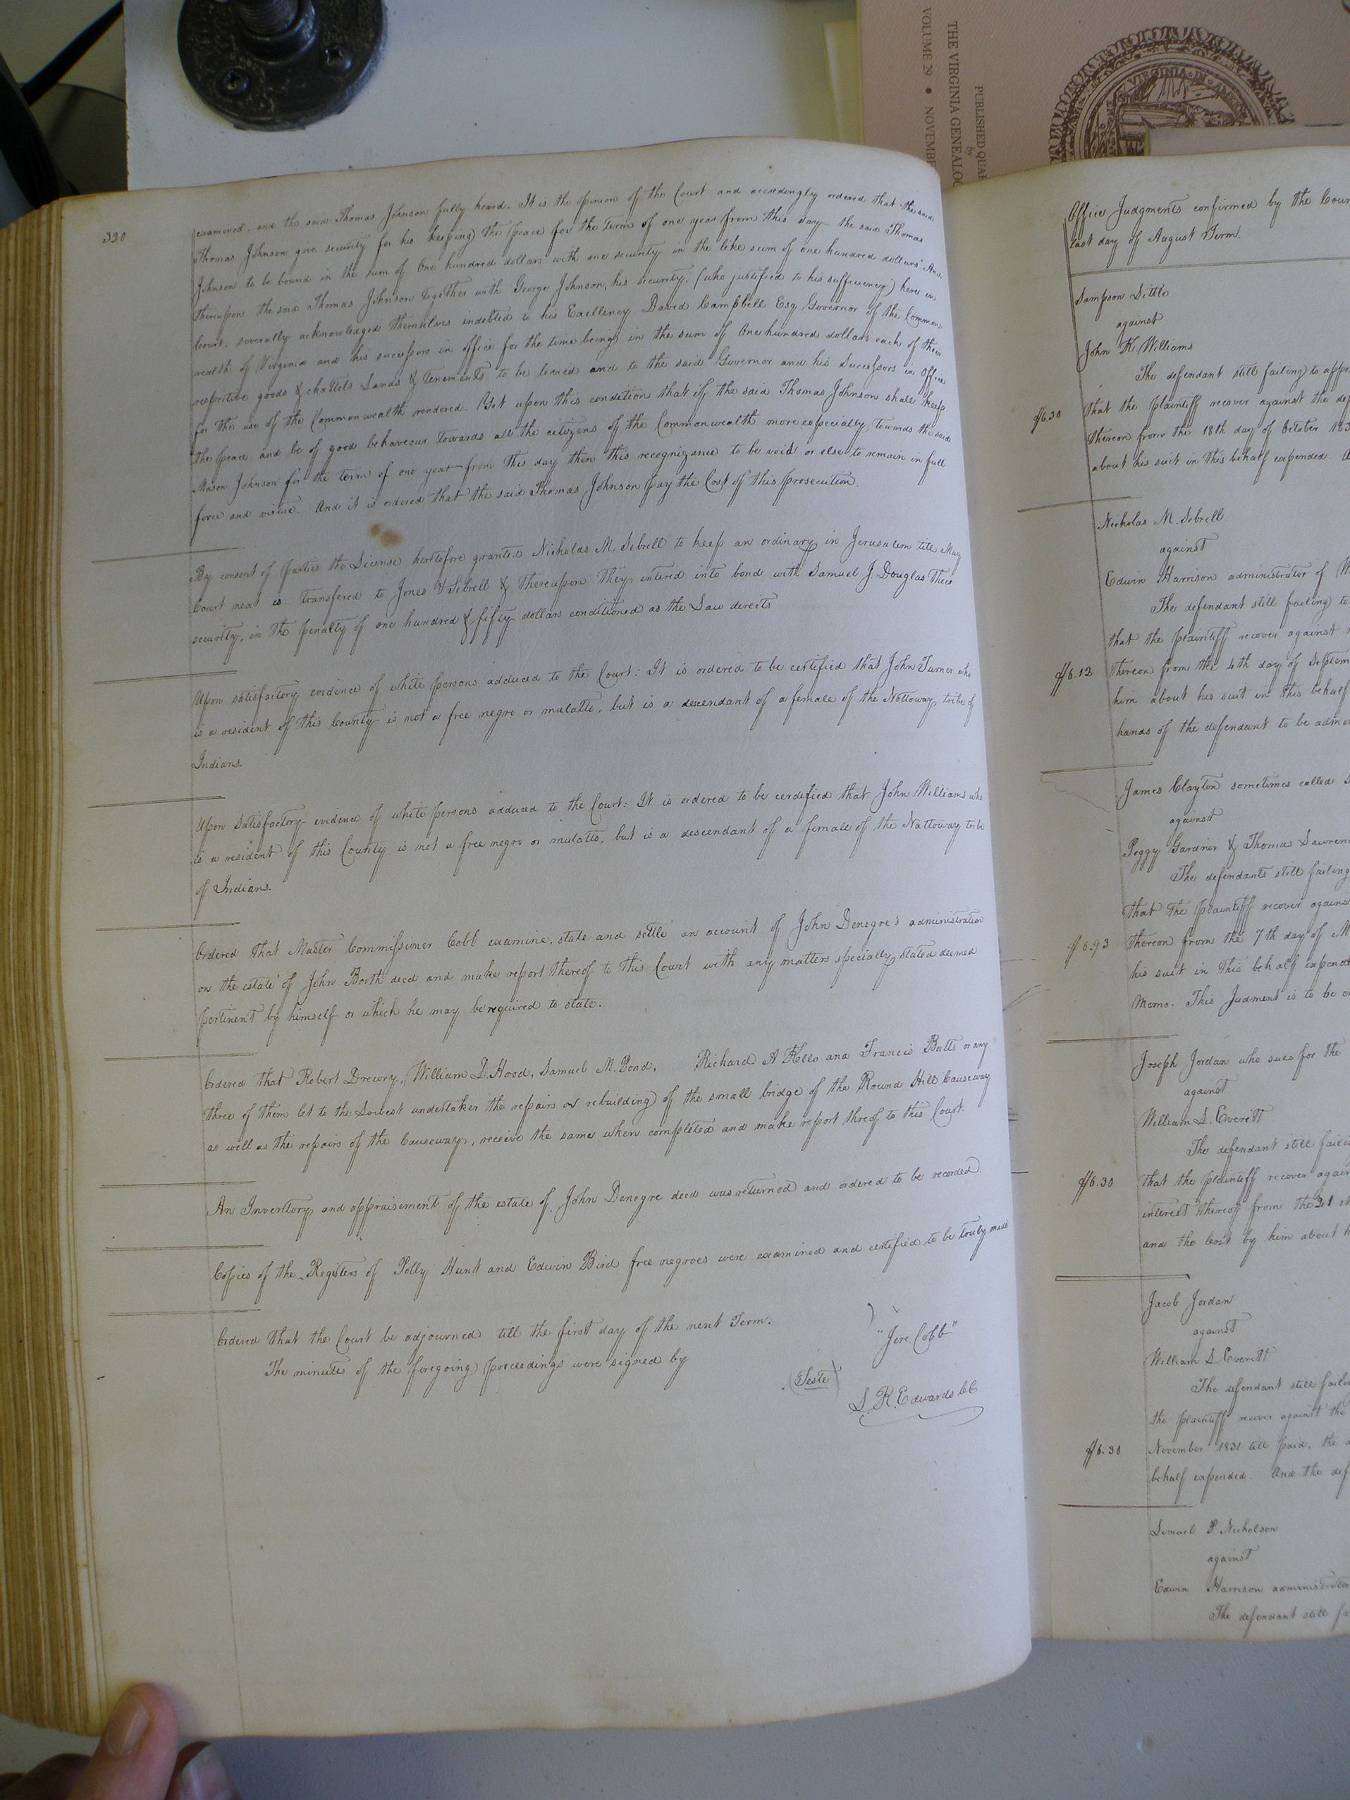 330
examined, and the said Thomas Johnson fully heard. It is the opinion of the Court and accordingly ordered that the said
Thomas Johnson give security for his keeping the peace for the term of one year from this day the said Thomas
Johnson to be bound in the sum of One hundred dollars with one security in the like sum of one hundred dollars. And
thereupon the said Thomas Johnson together with George Johnson, his security, (who justified to his sufficiency) here in
Court, severally acknowledged themselves indebted to his Excellency David Campbell Esq Governor of the Common
wealth of Virginia and his successors in office for the time being in the sum of One hundred dollars each of their
respective goods & chattels Lands & tenements to be levied and to the said Governor and his Successors in Office
for the use of the Commonwealth rendered. Yet upon this condition that if the said Thomas Johnson shall keep
the peace and be of good behaveour towards all the citizens of the Commonwealth more especially towards the said
Mason Johnson for the term of one year from this day then this recognizance to be void or else to remain in full
force and virtue. And it is ordered that the said Thomas Johnson pay the Cost of this prosecution.
By consent of parties the License heretofore granted Nicholas M. Sebrell to keep an ordinary in Jerusalem till May
Court next is transfered to Jones & Sebrell & thereupon they entered into bond with Samuel J. Douglas their
security, in the penalty of one hundred & fifty dollars conditioned as the Law directs
Upon satisfactory evidence of white persons adduced to the Court: It is ordered to be certified that John Turner who
is a resident of this County is not a free negro or mulatto, but is a descendant of a female of the Nottoway tribe of
Indians.
Upon satisfactory evidence of white persons adduced to the Court: It is ordered to be certified that John Williams who
is a resident of this County is not a free negro or mulatto, but is a descendant of a female of the Nottoway tribe
of Indians.
Ordered that Master Commissioner Cobb examine, state and settle an account of John Denegre's administration
on the estate of John Booth decd and make report thereof to this Court with any matters specially stated deemed
pertinent by himself or which he may be required to state.
Ordered that Robert Drewry, William D. Hood, Samuel M. Bond, Richard A Kello and Francis Butts or any
three of them let to the Lowest undertaker the repairs or rebuilding of the small bridge of the Round Hill Causeway
as well as the repairs of the Causeway, receive the same when completed and make report threof to this Court.
An Inventory and appraisement of the estate of John Denegre decd was returned and ordered to be recorded.
Copies of the Registers of Polly Hunt and Edwin Bird free negroes were examined and certified to be truly made
Ordered that the Court be adjourned till the first day of the next Term.
The minutes of the foregoing proceedings were signed by
"Jere Cobb"
Teste
L. R. Edwards CC
THE VIRGINIA GENEALOG
VOLUME 29 • NOVEMBE
PUBLISHED QUAR
by
VIRGINIA
Office Judgments confirmed by the Cour
last day of August Term.
Sampson Little
against
John K. Williams
The defendant still failing to appe
$6.30
that the plaintiff recover against the def
thereon from the 18th day of October 183
about his suit in this behalf expended.
Nicholas M. Sebrell
against
Edwin Harrison administrator of
The defendant still failing to
that the plaintiff recover against
$6.12
thereon from the 4th day of Septem
him about his suit in this behalf
hands of the defendant to be admin
James Clayton sometimes called
against
Peggy Gardner & Thomas Lawren
The defendants still failing
that the plaintiff recover against
$6.93
thereon from the 7th day of M
his suit in this behalf expended
Memo. This Judment is to be
Joseph Jordan who sues for the
against
William L. Everett
The defendant still failin
$6.30
that the plaintiff recover again
interest thereof from the 31 st
and the Cost by him about h
Jacob Jordan
against
William L Everett
The defendant still failin
the plaintiff recover against the
$6.30
November 1831 till paid, the
behalf expended. And the def
Lemuel P. Nicholson
against
Edwin Harrison administrator
The defendant still f